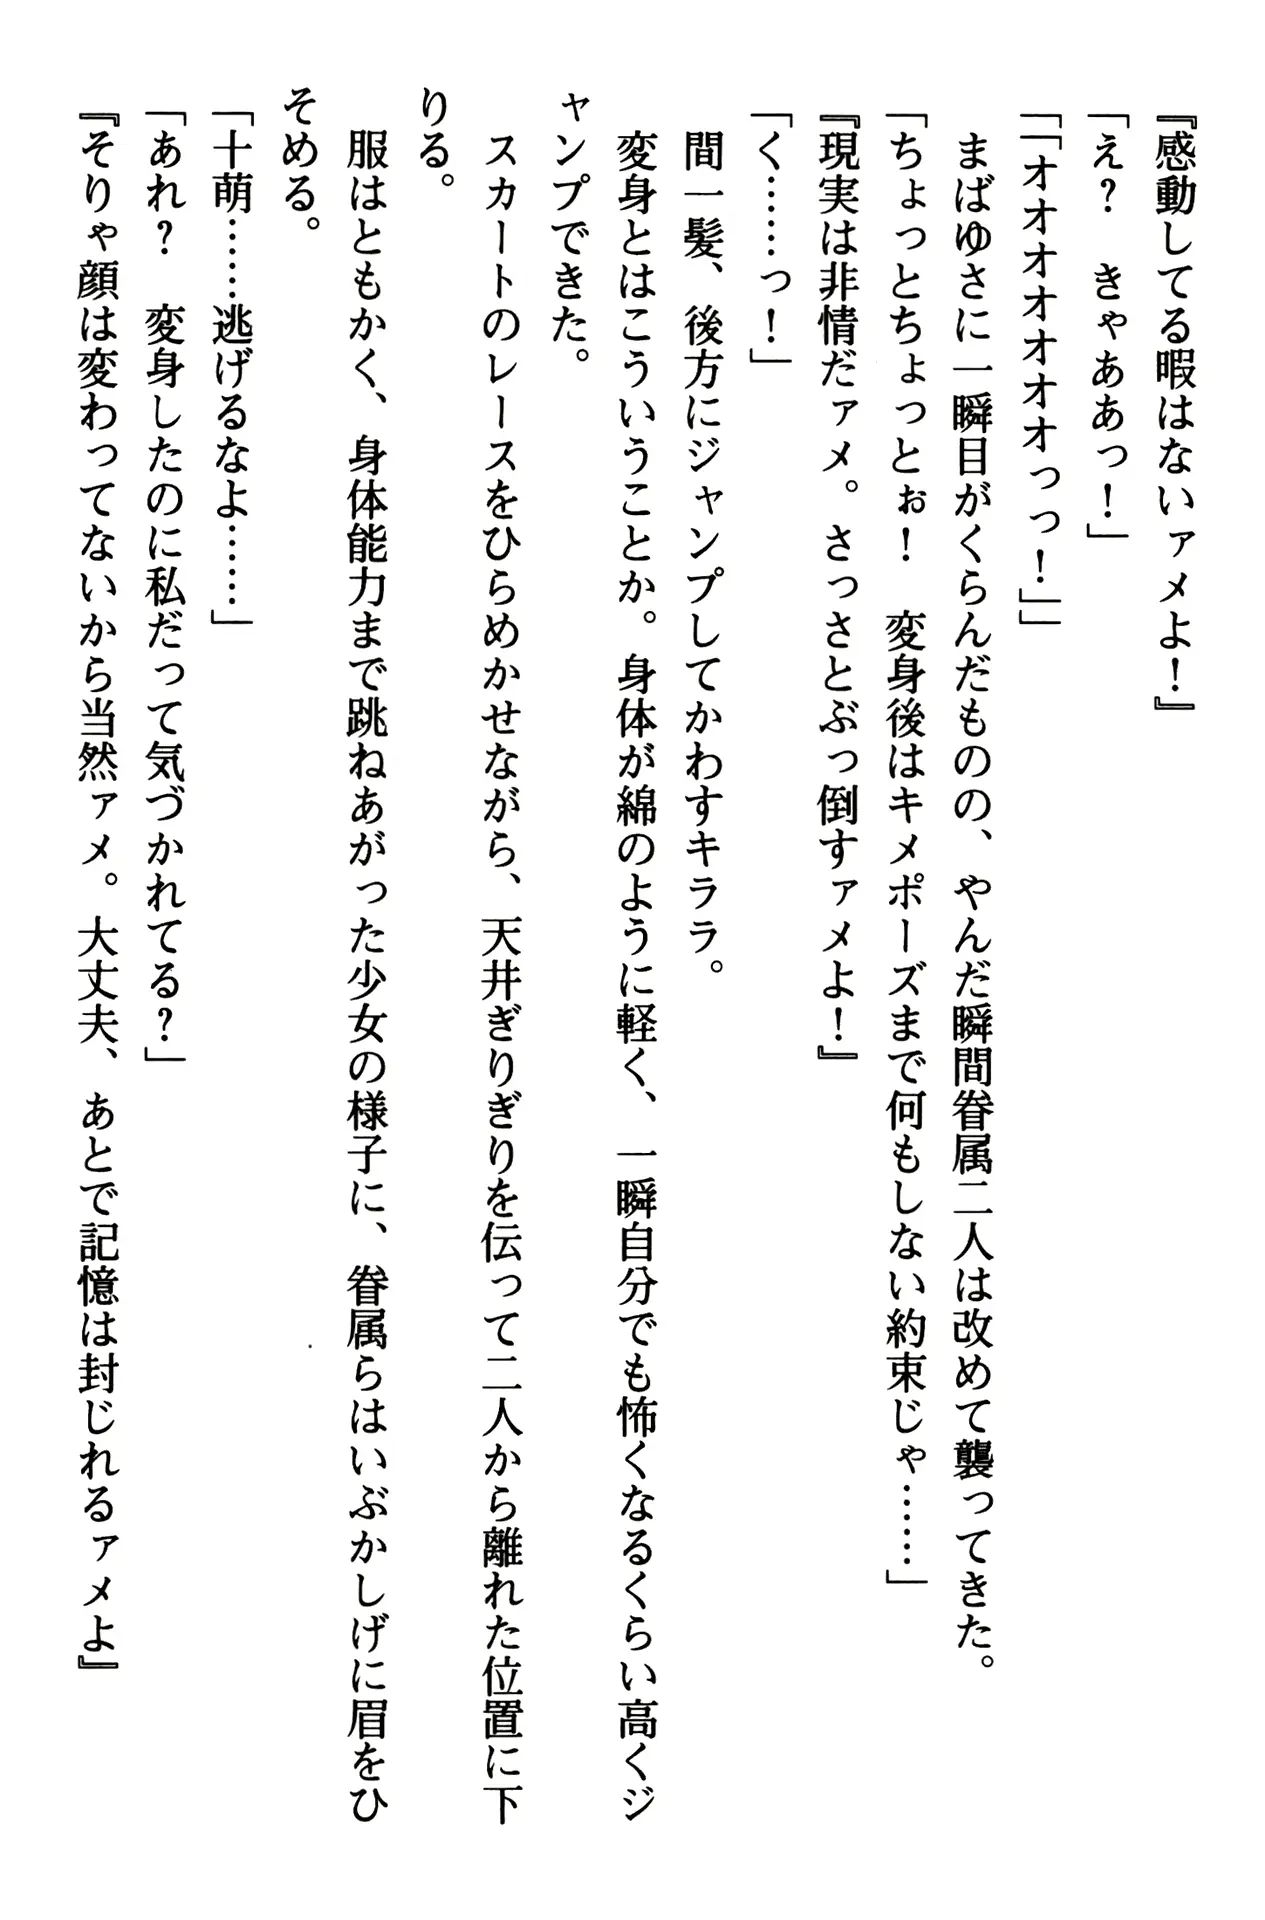 『感動してる暇はないァメよ！』
「え？　きゃああっ！」
「「オオオオオオオっっ！」」
　まばゆさに一瞬目がくらんだものの、やんだ瞬間眷属二人は改めて襲ってきた。
「ちょっとちょっとぉ！　変身後はキメポーズまで何もしない約束じゃ……」
『現実は非情だァメ。さっさとぶっ倒すァメよ！』
「く……っ！」
　間一髪、後方にジャンプしてかわすキララ。
　変身とはこういうことか。身体が綿のように軽く、一瞬自分でも怖くなるくらい高くジ
ャンプできた。
　スカートのレースをひらめかせながら、天井ぎりぎりを伝って二人から離れた位置に下
りる。
　服はともかく、身体能力まで跳ねあがった少女の様子に、眷属らはいぶかしげに眉をひ
そめる。
「十萌……逃げるなよ……」
「あれ？　変身したのに私だって気づかれてる？」
『そりゃ顔は変わってないから当然ァメ。大丈夫、あとで記憶は封じれるァメよ』